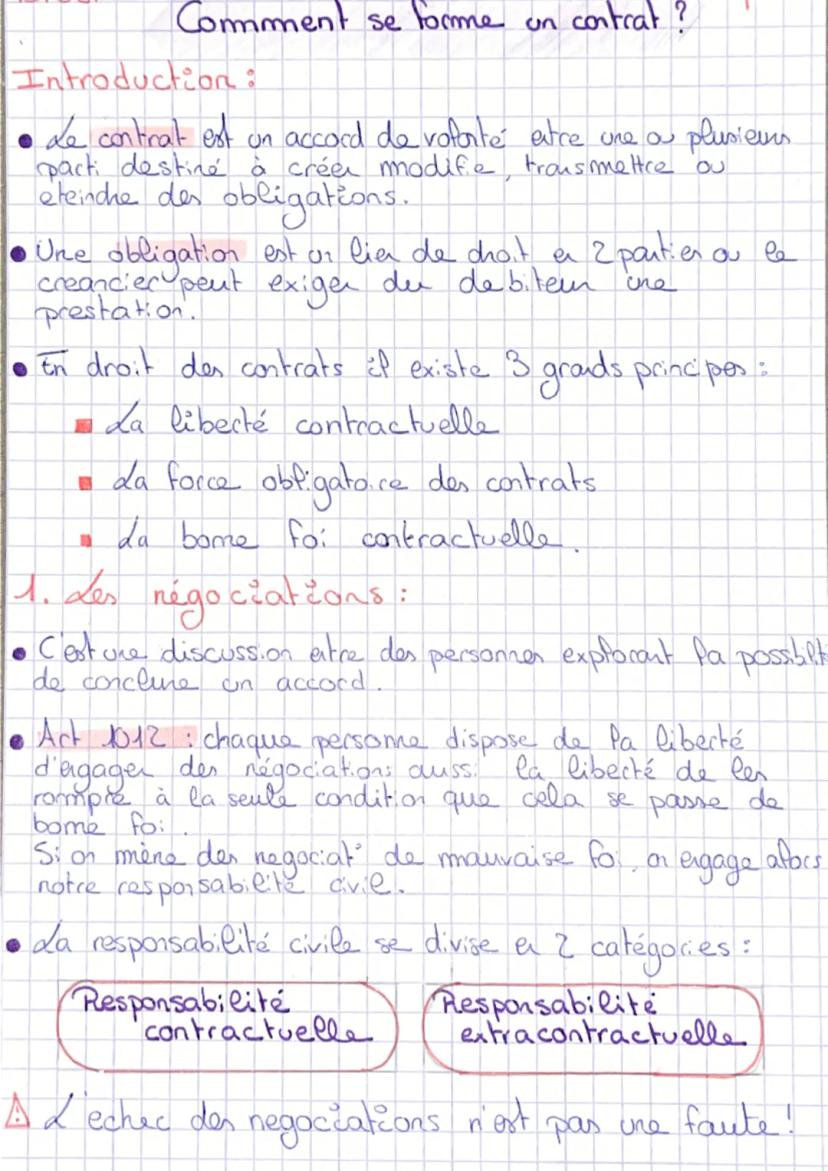 Commment se forme un contrat ?
Introduction :
• Le contrat est un accord de volonté entre une ou plusieurs
parti destiné à créer modifie, transmettre ou
eteindre des obligations.
• Une obligation est un lien de droit en 2 parties ou le
creancier peut exiger du debiteur une
prestation.
• En droit des contrats il existe 3 grands principes :
La liberté contractuelle
La force obligatoire des contrats
La bonne foi contractuelle.
1. Les négociations :
• C'est une discussion entre des personnes explorant la possiblt
de conclure un accord.
• Art 1012 : chaque personne dispose de la liberté
d'engager des négociations aussi la liberté de les
rompre à la seule condition que cela se passe de
bonne foi.
Si on mène des negociat° de mauvaise foi, on engage alors
notre responsabilité civile.
• La responsabilité civile se divise en 2 catégories :
Responsabilité
contractuelle
Responsabilité
extracontractuelle
⚠ L'echec des negociations n'est pas une faute !